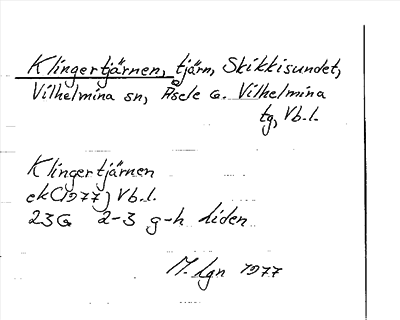 Klingertjärnen, tjärn, Skikkisundet,
Vilhelmina sn, Åsele o. Vilhelmina
tg, Vb.l.
Klingertjärnen
ek(1977) Vb.l.
23G 2-3 g-h Liden
M. Lgn 1977